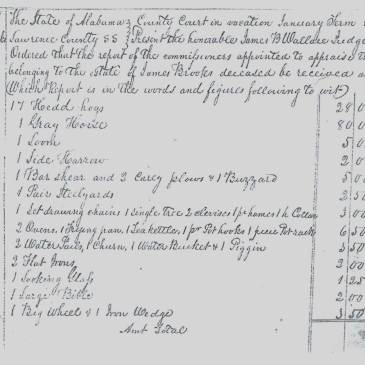 The State of Alabama } County Court in vacation January Term
Lawrence County SS } Present the honorable James B Wallace Judge
Ordered that the report of the commissioners appointed to appraise
belonging to The Estate of James Brooks deceased be received
(Which Report is in the words and figures following to wit)
17 Head hogs 28 0
1 Gray Horse 80 0
1 Loom 5 0
1 Side Harrow 2 0
1 Bar shear and 2 Carey plows & 1 Buzzard 5 0
1 Pair Steelyards 2 50
1 Set drawing chains 1 Single Tree 2 clevises 1 pr hames 1 h Collar 3 00
2 Ovens, 1 Frying pan, 1 Teakettle, 1 pr Pot hooks 1 piece Pot rack 6 50
2 Water Pails, 1 Churn, 1 Water Bucket & 1 Piggin 3 50
2 Flat Irons 00
1 Looking Glass 1 25
1 Large Bible 2 00
1 Big Wheel & 1 Iron Wedge 3 50
Amt Total